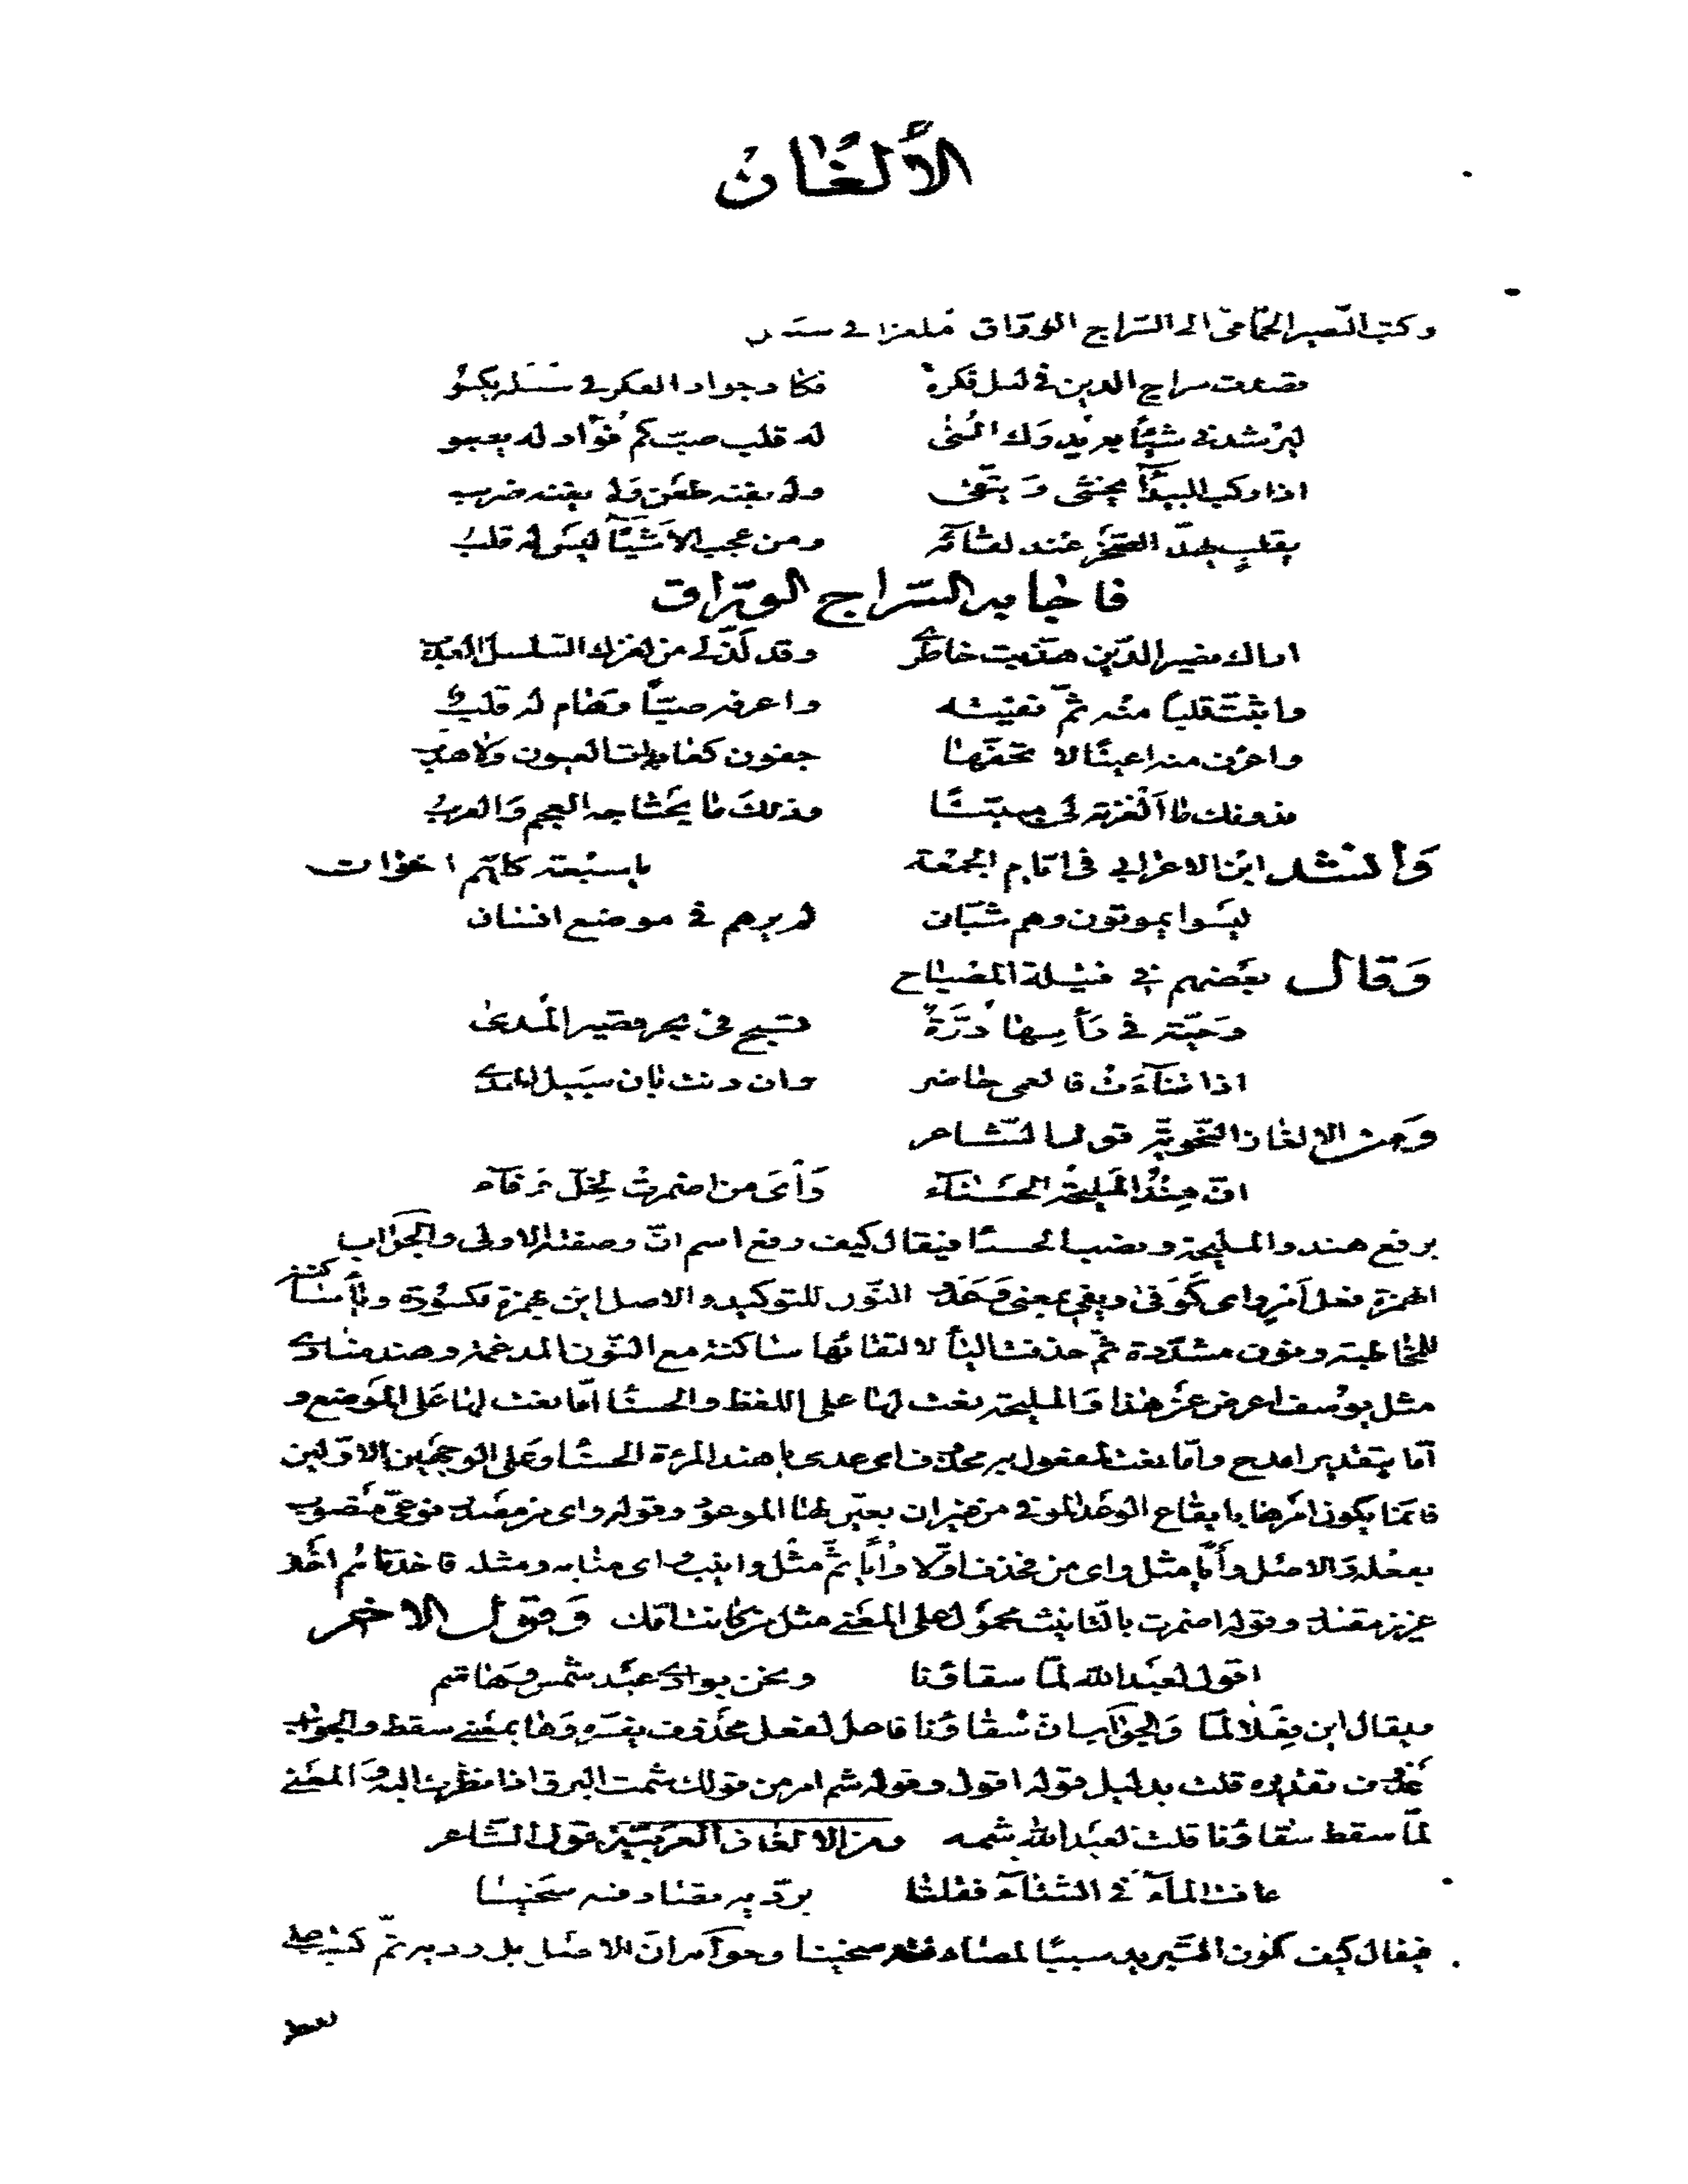 الألغاز
وكتب النصير الحمّامي الى السّراج الورّاق ملغزا في
سراج الدين في ليل فكرة فكا وجواد الفكر في يكبو
ليرشدني شيئًا له قلب صبّ كم فؤاد له يصبو
اذا ركب البيدآ يخشى وَ يتّقى ولم يفته طعن ولم يفته ضرب
بقلب يهدّ الصّخر عند لقائه ومن عجب الاشيآ ليس له قلب
فاجابه السّراج الورّاق
اراك نصير الدّين خاطري وقد لذّ لي من لغزك السّلسل العذب
واثبتّ قلبا منه ثمّ نفيته واعرفه صبّا وما له قلب
واعرف منه اعينًا لا تحفّها جفون كعادات العيون ولا هدب
فدونك ما الغزته لي مبيّنًا وذلك ما يحتاجه العجم وَالعرب
وَانشد ابن الاعرابي في ايّام الجمعة ما سبعة كلّهم اخوان
ليسوا يموتون وهم شبّان لم يرهم في موضع انسان
وَقال بعضهم في فتيلة المصباح
وَحيّة في رَأسِها دُرّةٌ تسبح في بحر قصير المدى
اذا تناءَت فالعمى حاضر وان دنت بان سبيل الهدى
وَمن الالغاز النّحويّة قول الشّاعر
انّ هندُ المليحةُ الحسناءَ وَأىَ من اضمرتْ لخلّ وَفآء
برفع هند والمليحة ونصب الحسنا فيقال كيف رفع اسم انّ وصفته الاولى والجواب
الهمزة فعل أمر النّون للتوكيد والاصل اين بهمزة مكسورة ويأ ساكنة
للمخاطبة ونون مشدّدة ثمّ حذفت اليأ لالتقائها ساكنة مع النّون المدغمة وهند منادى
مثل يوسف اعرض عن هذا وَالمليحة نعت لها على اللفظ والحسنا امّا نعت لها عَلى الموضع و
امّا بتقدير امدح وامّا نعت لمفعول به محذوف اى عدى يا هند المرأة الحسنا وعلى الوجهين الاوّلين
فانّما يكون امرها بايقاع الوعد الوفي من غير ان يعيّن لها الموعود وقوله وأى مصدر نوعىّ منصوب
بفعله وَالاصل وأيًا مثل وأى من
عزيز مقتدر وقوله اضمرت بالتّانيث محمول على المعنى مثل من كانت امّك وَقول الاخر
اقول لعبد الله لمّا سقاؤنا ونحن بوادى عبد شمس وهاشم
فيقال اين فعلا لمّا وَالجواب ان سقاؤنا فاعل لفعل محذوف يفسّره وَها بمعنى سقط والجواب
محذوف تقديره قلت بدليل قوله اقول وقوله شم امر من قولك شمت البرق اذا نظرت اليه وَالمعنى
لمّا سقط سقاؤنا قلت لعبد الله شمه ومن الالغاز العربيّة قول الشّاعر
عافت المآء في الشّتآء فقلنا برّديه تصادفيه سخينا
فيقال كيف يكون التّبريد سببًا لمصادفته سخينا وجوابه انّ الاصل بل رديه ثمّ كتب على
لفظ